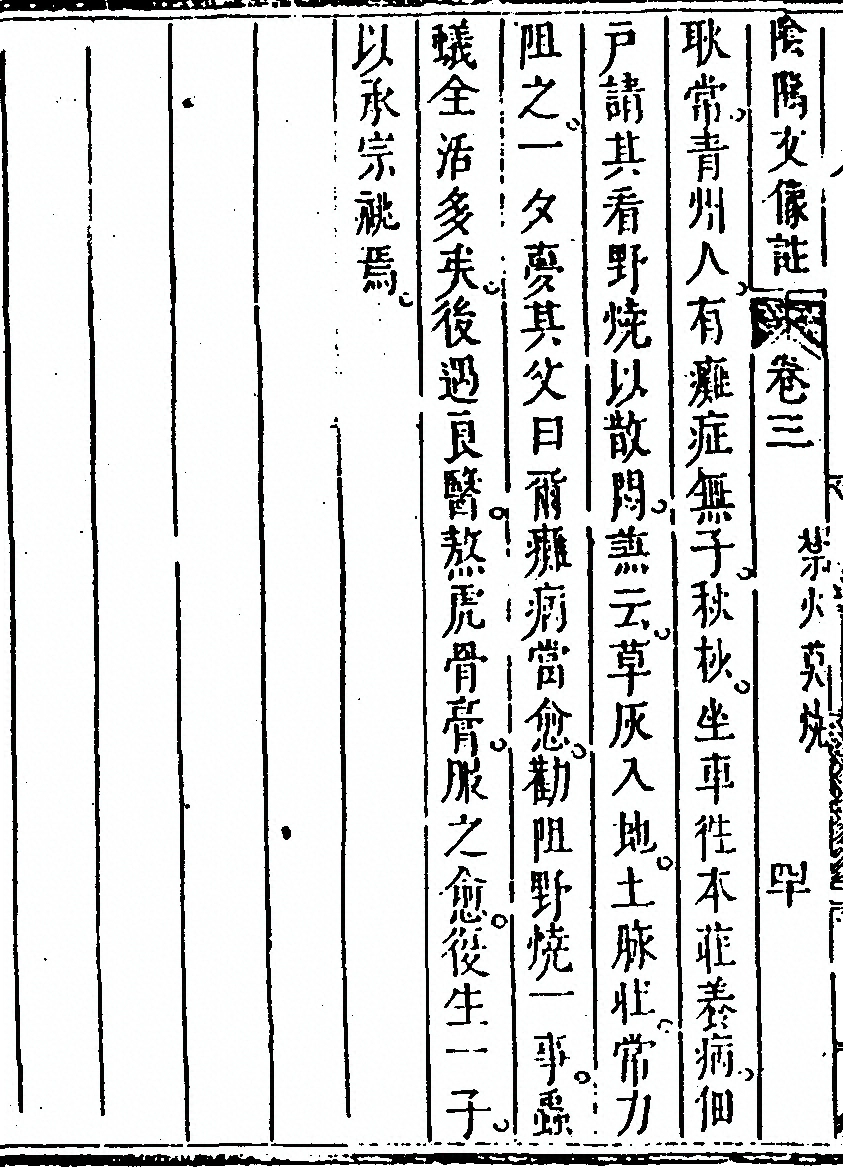 陰隲文像註 卷三 禁火莫燒 四十
耿常青州人有癱症無子秋秋坐車往本莊養病佃
戸請其看野燒以散悶兼云草灰入地土脉壯常力
阻之一夕夢其父曰爾癱病當愈勸阻野燒一事蟲
蟻全活多矣後遇良醫熬虎骨膏服之愈後生一子
以承宗祧焉